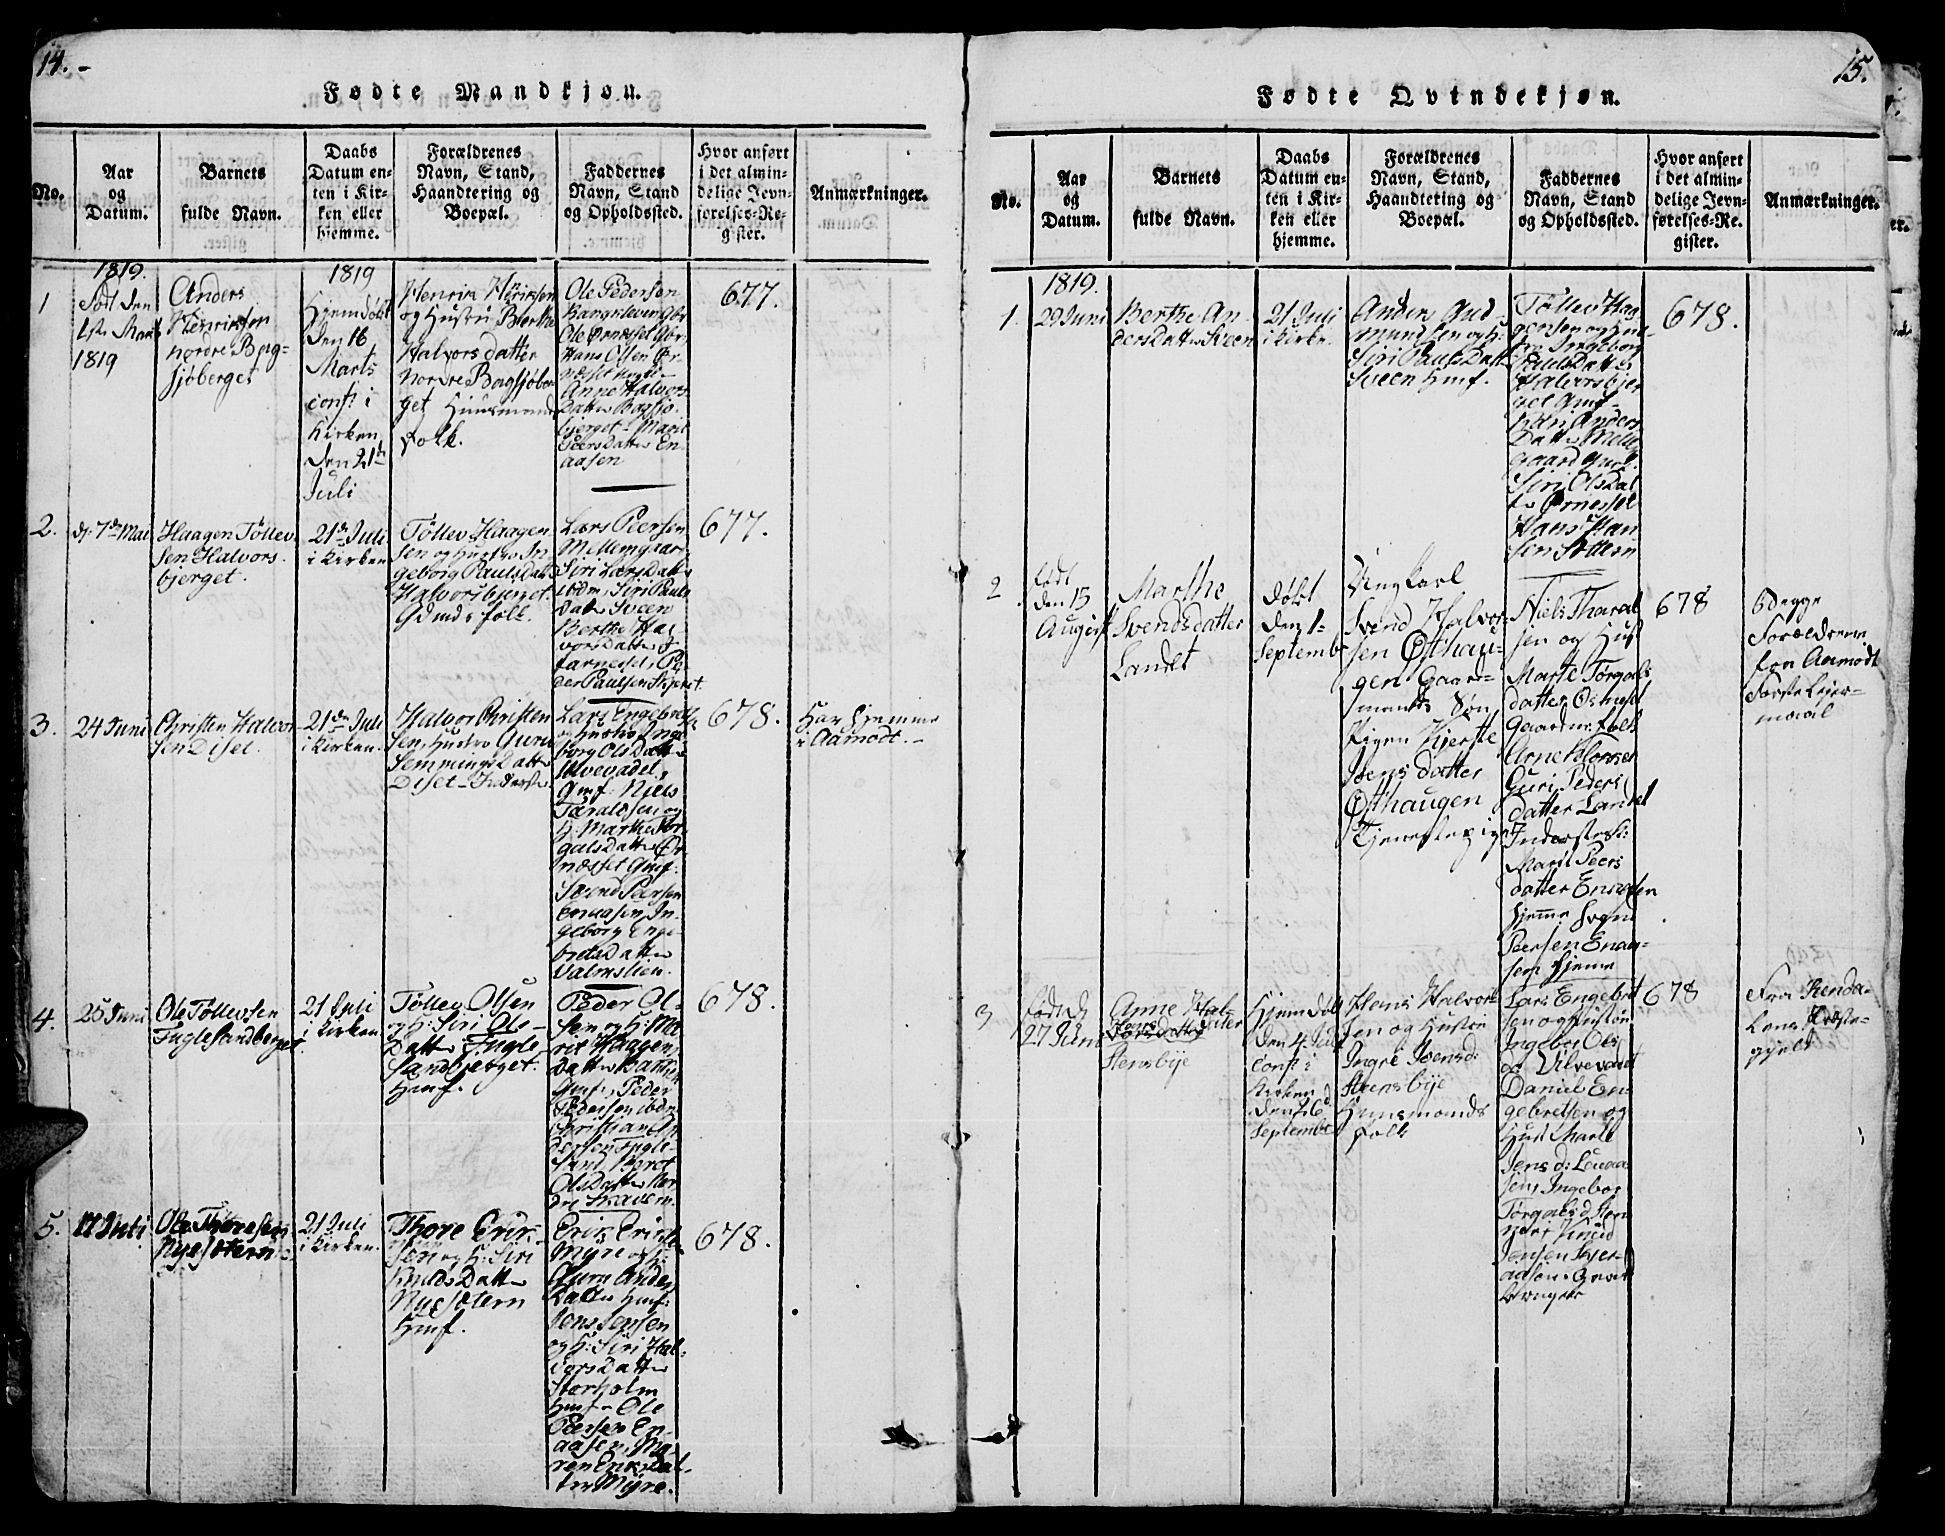 14. -
Fødte Mandkjøn.
No.
Aar
og
Datum.
Barnets
fulde Navn.
Daabs
Datum en-
ten i Kir-
ken eller
hjemme.
Forældrenes
Navn, Stand,
Haandtering og
Boepæl.
Faddernes
Navn, Stand
og Opholdssted.
Hvor anført
i det almin-
delige Jevn-
førelses-Re-
gister.
Anmærkninger.
1
1819.
Født den
1ste Marts
1819
Anders
Henriksen
nordre Berg-
sjøberget
1819
Hjemdøbt
Den 16
Marts
conf: i
Kirken
den 21de
Juli
Henrik Henriksen
og Hustru Berthe
Halvors datter
nordre Bergsjøber
get Huusmands
folk.
Ole Pedersen
Ole Ørnæset Gbr.
Hans Olsen Ør-
næset
Anne Halvors
Datter Bergsjø-
berget - Marit
Peersdatter En-
aasen
677.
2.
d: 7de Mai
Haagen Tøllev
sen Halvors-
bjerget.
21de Juli
i Kirken
Tøllev Haagen
sen og Hustro In-
geborg Paulsdatter
Halvorsbjerget.
Gdmds folk.
Lars Peersen
Mellemgaar
Siri Larsdatter
ibdm, Siri Pauls
datter Sveen
Berthe Hal
vorsdatter
Pe
der Paulsen Skjeret.
677.
3.
24 Juni
Christen Halvor
sen Diset.
21de Juli
i Kirken.
Halvor Christen
sen, Hustro Guru
Semmingsdatter
Diset - Inderste
Lars Engebret
og Hustro Inge
borg Olsdatter
Ulvevadet,
Gmf: Niels
Taraldsen og
H: Marthe Tor
galsdatter Ør
næsset Gmf:
Svend Peersen
Enaasen, In-
geborg Enge-
bretsdatter
Valmslien.
678.
Har hjemme
i Aamodt. -
4.
25 Juni
Ole Tøllevsen
Fuglesandberget
21 Juli
i Kirken
Tøllev Olsen
og H: Siri Ole-
Datter Fugle-
sandbjerget.
Hmf.
Peder Ol-
sen og H: Ma-
rit Haagen
datter
Gmf: Peder
Pedersen ibdm
Christian An
dersen Fugle-
sand, Beret
Olsdatter Nor
dre Skavern.
678.
5.
17 Juli
Ole Thoresen
Nysætern
21 Juli
i Kirken.
Thore Erik-
sen og H: Siri
Knudsdatter
Nysætern
Hmf.
Erik Eriksen
Myre og H:
Guru Anders
datter Hmf:
Jens Jensen
og H: Siri Hal-
vorsdatter
Storholm
Hmf - Ole
Peersen En-
aasen, Ma-
ren Eriksdat-
ter Myre.
678.
15.
Fødte Qvindekjøn.
No.
Aar
og
Datum.
Barnets
fulde Navn.
Daabs
Datum en-
ten i Kir-
ken eller
hjemme.
Forældrenes
Navn, Stand,
Haandtering og
Boepæl.
Faddernes
Navn, Stand
og Opholdssted.
Hvor anført
i det almin-
delige Jevn-
førelses-Re-
gister.
Anmærkninger.
1.
1819.
29 Juni
Berthe An-
dersdatter Sveen
21 Juli
i Kirke.
Anders Gud-
mundsen og H:
Siri Paulsdatter
Sveen Hmf.
Tøllev Haa-
gensen og Hus-
tro Ingeborg
Paulsdatter
Halvorsbjer
get Gmf-
Kari Anders
datter Mellem
gaard
Siri Olsdat
ter Ørnesset
Hans Han
sen Sættern
678.
2.
født
den 15
August
Marthe
Svendsdatter
Landet
døbt
den 1-
Septembr
Ungkarl
Svend Halvor-
sen Østhau-
gen Gaard-
mands Søn,
Pigen Kjerste
Joensdatter
Østhaugen
Tjenestepige
Niels Tharal
sen og Hust
Marte Torgals
datter Osneset
Gaardm: folk
Arne
Guri Peders
datter Landet
Inderstfolk:
Marit Peers
datter Enaasen
hjemme
Peersen Enaa-
sen hjeme
678
Begge
Forældrene
fra Aamodt
Første Leier-
maal
3
født d
27 Juni
Anne Hal-
datter
Stensbye
Hjemdøbt
den 4 Juli
conf: i
Kirken
den 26
Septembr
Hans Halvor
sen og Hustru
Ingre Joensd:
Stensbye
Huusmands
folk
Lars Engebret
sen og Hustru
Ingebor Ols
d: Ulvevadet
Daniel En-
gebretsen og
Hust Marte
Jensd:
Ingebor
Torgalsd:
Knud
Jensen
678
Fra Renda-
lens Præste-
gjeld